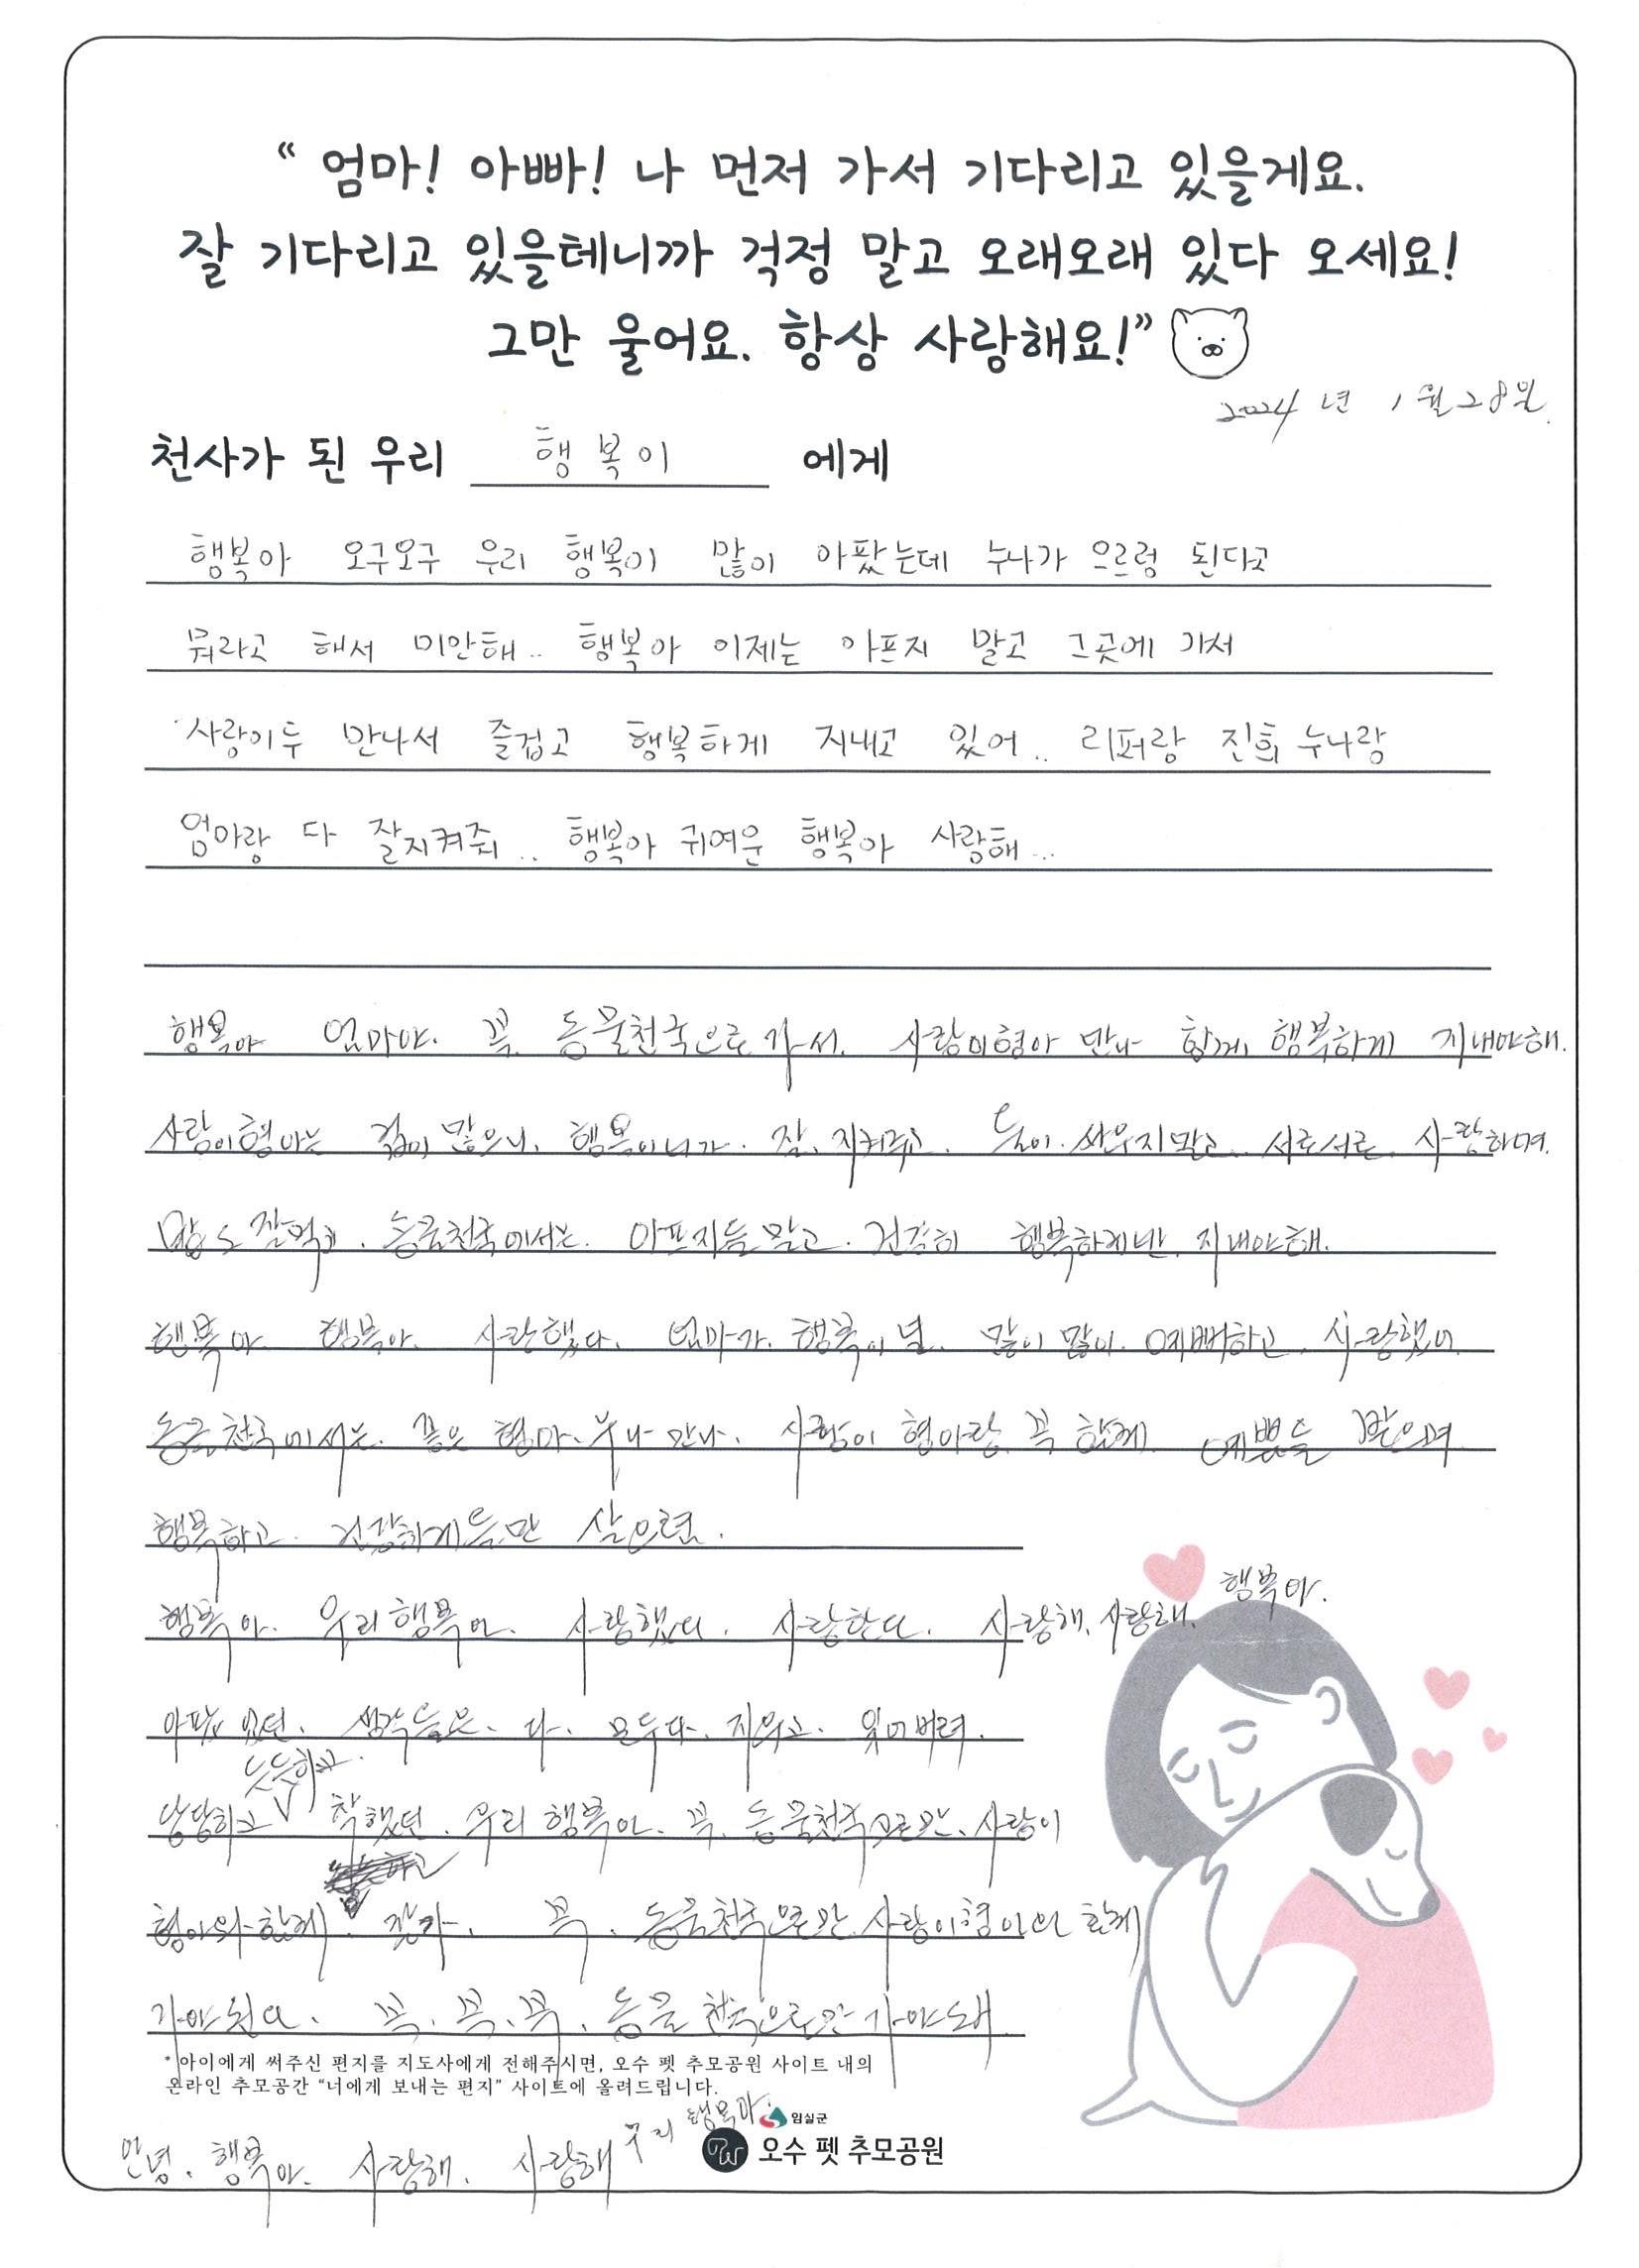 “ 엄마! 아빠! 나 먼저 가서 기다리고 있을게요.
잘 기다리고 있을테니까 걱정 말고 오래오래 있다 오세요!
그만 울어요. 항상 사랑해요!”
2024년 1월 28일.
천사가 된 우리 행복이 에게
행복아 오구오구 우리 행복이 많이 아팠는데 누나가 으르렁 된다고
뭐라고 해서 미안해.. 행복아 이제는 아프지 말고 그곳에 가서
사랑이두 만나서 즐겁고 행복하게 지내고 있어.. 리퍼랑 진희 누나랑
엄마랑 다 잘지켜줘.. 행복아 귀여운 행복아 사랑해...
행복아 엄마야. 꼭 동물천국으로 가서. 사랑이형아 만나 함께 행복하게 지내야해.
사랑이형아는 겁이 많으니. 행복이니가. 잘. 지켜주고. 둘이. 싸우지말고.. 서로서로. 사랑하며.
밥도 잘먹고. 동물천국에서는. 아프지들말고. 건강히 행복하게만. 지내야해.
행복아. 행복아. 사랑했다. 엄마가. 행복이 널. 많이 많이. 예뻐하고. 사랑했어.
동물천국에서는. 좋은 형아. 누나 만나. 사랑이 형아랑. 꼭 함께. 예쁨들 받으며
행복하고. 건강하게들만 살으렴.
행복아. 우리행복아. 사랑했다. 사랑한다. 사랑해. 사랑해. 행복아.
아팠었던. 생각들은. 다. 모두다. 지우고. 잊어버려.
당당하고 듯듯하고. 착했던. 우리 행복아. 꼭. 동물천국으로만. 사랑이
형아와 함께. 잘가. 꼭. 동물천국으로만. 사랑이형아와 함께
가야된다. 꼭. 꼭. 꼭. 동물천국으로만 가야돼.
* 아이에게 써주신 편지를 지도사에게 전해주시면, 오수 펫 추모공원 사이트 내의
온라인 추모공간 “너에게 보내는 편지” 사이트에 올려드립니다.
안녕. 행복아. 사랑해. 사랑해 우리 행복아.
임실군
오수 펫 추모공원